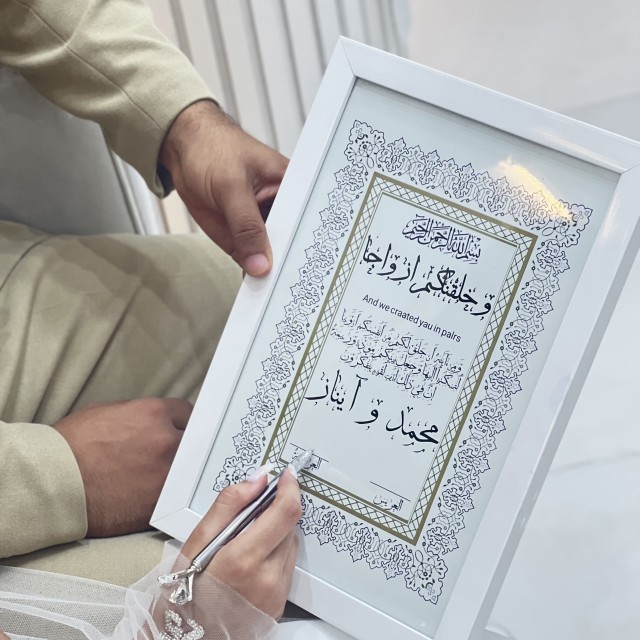 بسم الله الرحمن الرحيم
و خلقنكم ازواجا
And we craated yau in pairs
ومن آياته أن خلق لكم من أنفسكم أزواجا
لتسكنوا إليها وجعل بينكم مودة ورحمة
إن في ذلك لآيات لقوم يتفكرون
محمد و آيناز
العريس